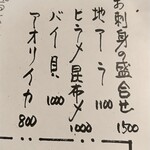 お刺身の盛合せ 1500
地アラ 1100
ヒラメ昆布〆 1000
バイ貝 1000
アオリイカ 800